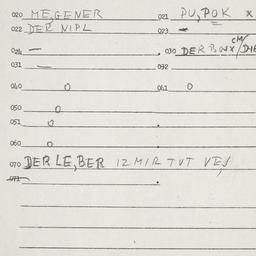 020 ME,GENER 021 PU,POK x
022 DER NIPL 023 –
024 — 030 DER B
031 — 032
040 O 041 O
050 O
051 O
060 O
070 DER LE,BER 12 MIR TUT VEJ
071